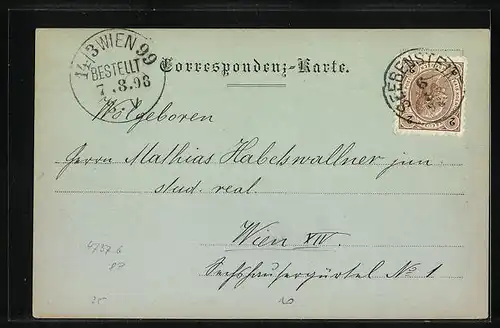 14/3 WIEN 99
BESTELLT
7 .8.98
Correspondenz-Karte.
SEEBENSTEIN
6
2
Wolgeboren
Herrn Mathias Habelswallner jun.
stud. real.
Wien XIV.
Sechshausergürtel No 1
4737 b
87
25
20